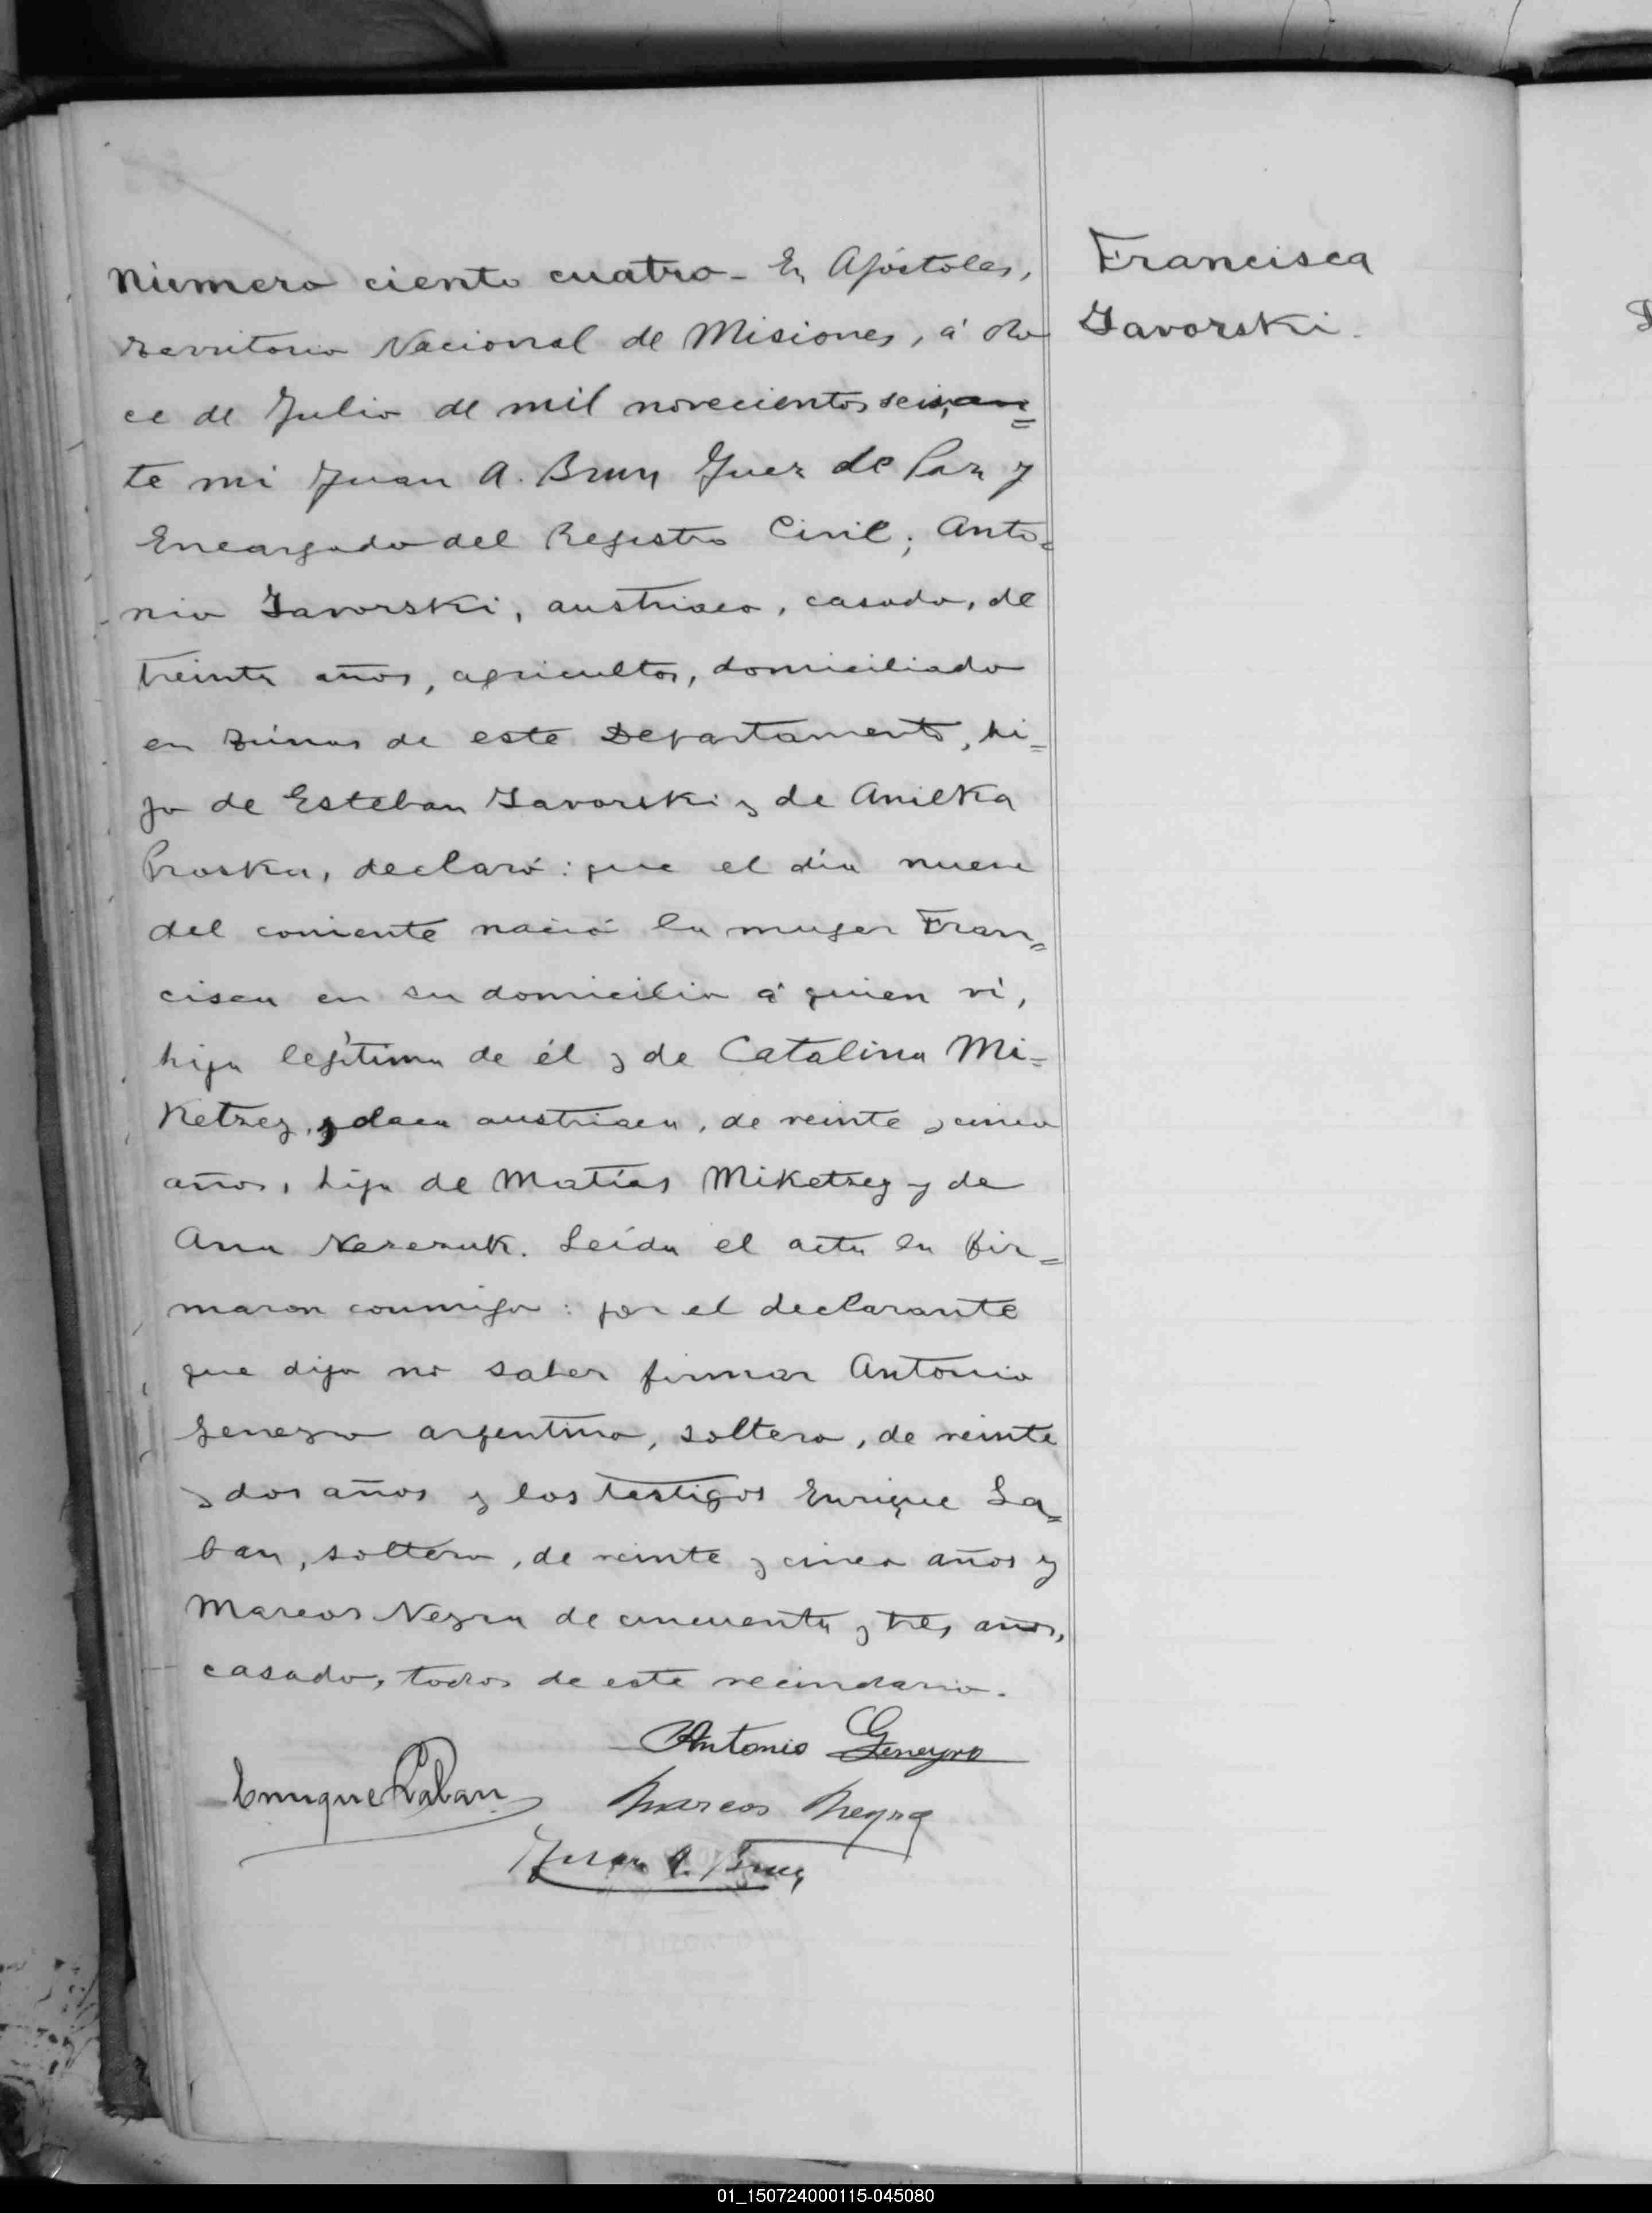 Número ciento cuatro - En Apóstoles,
Territorio Nacional de Misiones, á do
ce de Julio de mil novecientos seis, an=
te mi Juan A. Brun Juez de Paz y
Encargado del Registro Civil; Anto=
nio Javorski, austriaco, casado, de
treinta años, agricultor, domiciliado
en de este Departamento, hi=
jo de Esteban Javorski y de Anilka
Proska, declaró: que el día nueve
del corriente nació la mujer Fran=
cisca en su domicilio á quien ví,
hija legítima de él y de Catalina Mi=
Ketzez, austriaca, de veinte y cinco
años, hija de Matías Miketzez y de
Ana Nezezuk. Leída el acta la fir=
maron conmigo: por el declarante
que dijo no saber firmar Antonio
Geneyro argentino, soltero, de veinte
y dos años y los testigos Enrique La=
ban, soltero, de veinte y cinco años y
Marcos Neyra de cincuenta y tres años,
casado, todos de este vecindario.
Antonio Geneyro
Enrique Laban
Marcos Neyra
Juan A. Brun
Francisca
Javorski.
01_150724000115-045080